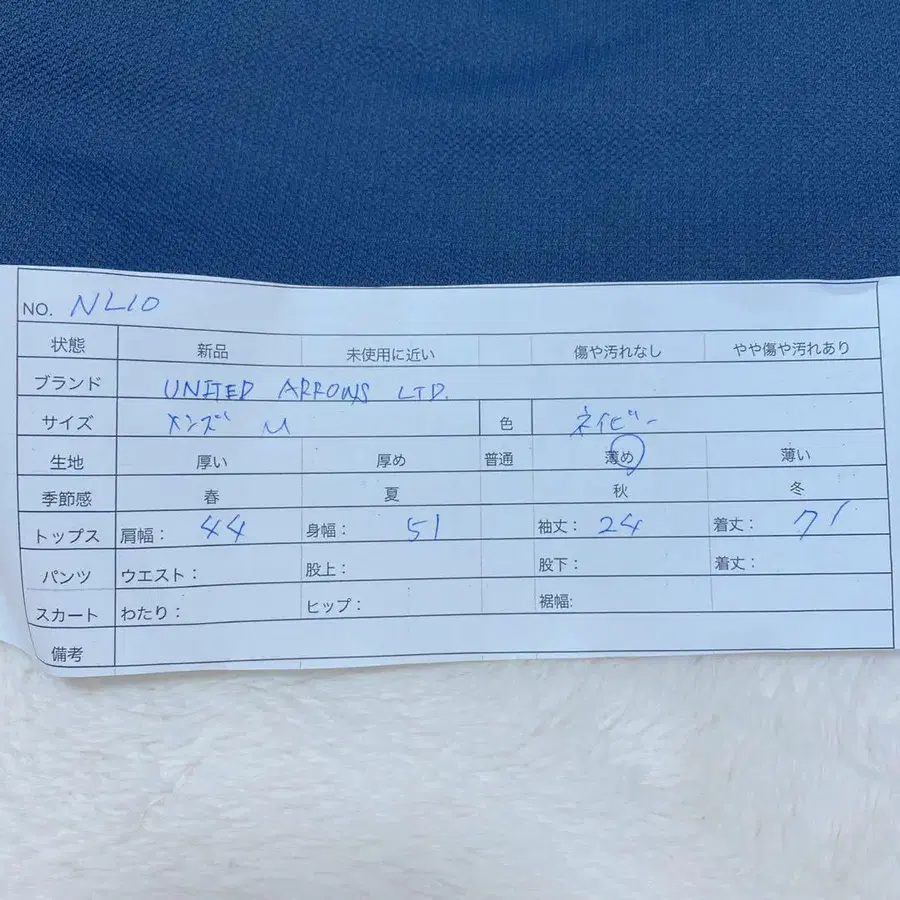 NO. NL10
状態 新品 未使用に近い 傷や汚れなし やや傷や汚れあり
ブランド UNITED ARROWS LTD.
サイズ メンズ M 色 ネイビー
生地 厚い 厚め 普通 薄め 薄い
季節感 春 夏 秋 冬
トップス 肩幅： 44 身幅： 51 袖丈： 24 着丈： 71
パンツ ウエスト： 股上： 股下： 着丈：
スカート わたり： ヒップ： 裾幅:
備考